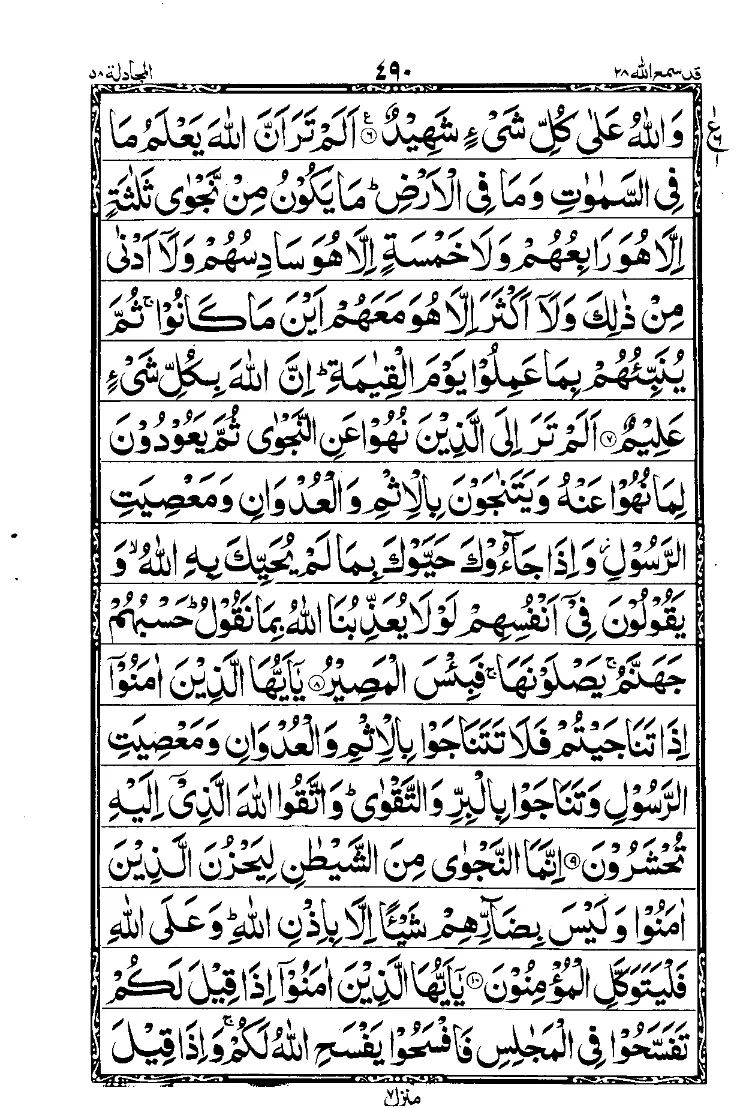 قد سمع الله ٢٨ ٤٩٠ المجادلة ٥٨
وَاللّٰهُ عَلٰى كُلِّ شَیْءٍ شَهِیْدٌ ۟۠ ﴿۶﴾ اَلَمْ تَرَ اَنَّ اللّٰهَ یَعْلَمُ مَا
فِی السَّمٰوٰتِ وَمَا فِی الْاَرْضِ ؕ مَا یَكُوْنُ مِنْ نَّجْوٰى ثَلٰثَةٍ
اِلَّا هُوَ رَابِعُهُمْ وَلَا خَمْسَةٍ اِلَّا هُوَ سَادِسُهُمْ وَلَاۤ اَدْنٰى
مِنْ ذٰلِكَ وَلَاۤ اَكْثَرَ اِلَّا هُوَ مَعَهُمْ اَیْنَ مَا كَانُوْا ۚ ثُمَّ
یُنَبِّئُهُمْ بِمَا عَمِلُوْا یَوْمَ الْقِیٰمَةِ ؕ اِنَّ اللّٰهَ بِكُلِّ شَیْءٍ
عَلِیْمٌ ﴿۷﴾ اَلَمْ تَرَ اِلَى الَّذِیْنَ نُهُوْا عَنِ النَّجْوٰى ثُمَّ یَعُوْدُوْنَ
لِمَا نُهُوْا عَنْهُ وَیَتَنٰجَوْنَ بِالْاِثْمِ وَالْعُدْوَانِ وَمَعْصِیَتِ
الرَّسُوْلِ ؗ وَاِذَا جَآءُوْكَ حَیَّوْكَ بِمَا لَمْ یُحَیِّكَ بِهِ اللّٰهُ ۙ وَ
یَقُوْلُوْنَ فِیْۤ اَنْفُسِهِمْ لَوْلَا یُعَذِّبُنَا اللّٰهُ بِمَا نَقُوْلُ ؕ حَسْبُهُمْ
جَهَنَّمُ ۚ یَصْلَوْنَهَا ۚ فَبِئْسَ الْمَصِیْرُ ﴿۸﴾ یٰۤاَیُّهَا الَّذِیْنَ اٰمَنُوْۤا
اِذَا تَنَاجَیْتُمْ فَلَا تَتَنَاجَوْا بِالْاِثْمِ وَالْعُدْوَانِ وَمَعْصِیَتِ
الرَّسُوْلِ وَتَنَاجَوْا بِالْبِرِّ وَالتَّقْوٰى ؕ وَاتَّقُوا اللّٰهَ الَّذِیْۤ اِلَیْهِ
تُحْشَرُوْنَ ﴿۹﴾ اِنَّمَا النَّجْوٰى مِنَ الشَّیْطٰنِ لِیَحْزُنَ الَّذِیْنَ
اٰمَنُوْا وَلَیْسَ بِضَآرِّهِمْ شَیْـًٔا اِلَّا بِاِذْنِ اللّٰهِ ؕ وَعَلَى اللّٰهِ
فَلْیَتَوَكَّلِ الْمُؤْمِنُوْنَ ﴿۱۰﴾ یٰۤاَیُّهَا الَّذِیْنَ اٰمَنُوْۤا اِذَا قِیْلَ لَكُمْ
تَفَسَّحُوْا فِی الْمَجٰلِسِ فَافْسَحُوْا یَفْسَحِ اللّٰهُ لَكُمْ ۚ وَاِذَا قِیْلَ
منزل ٧